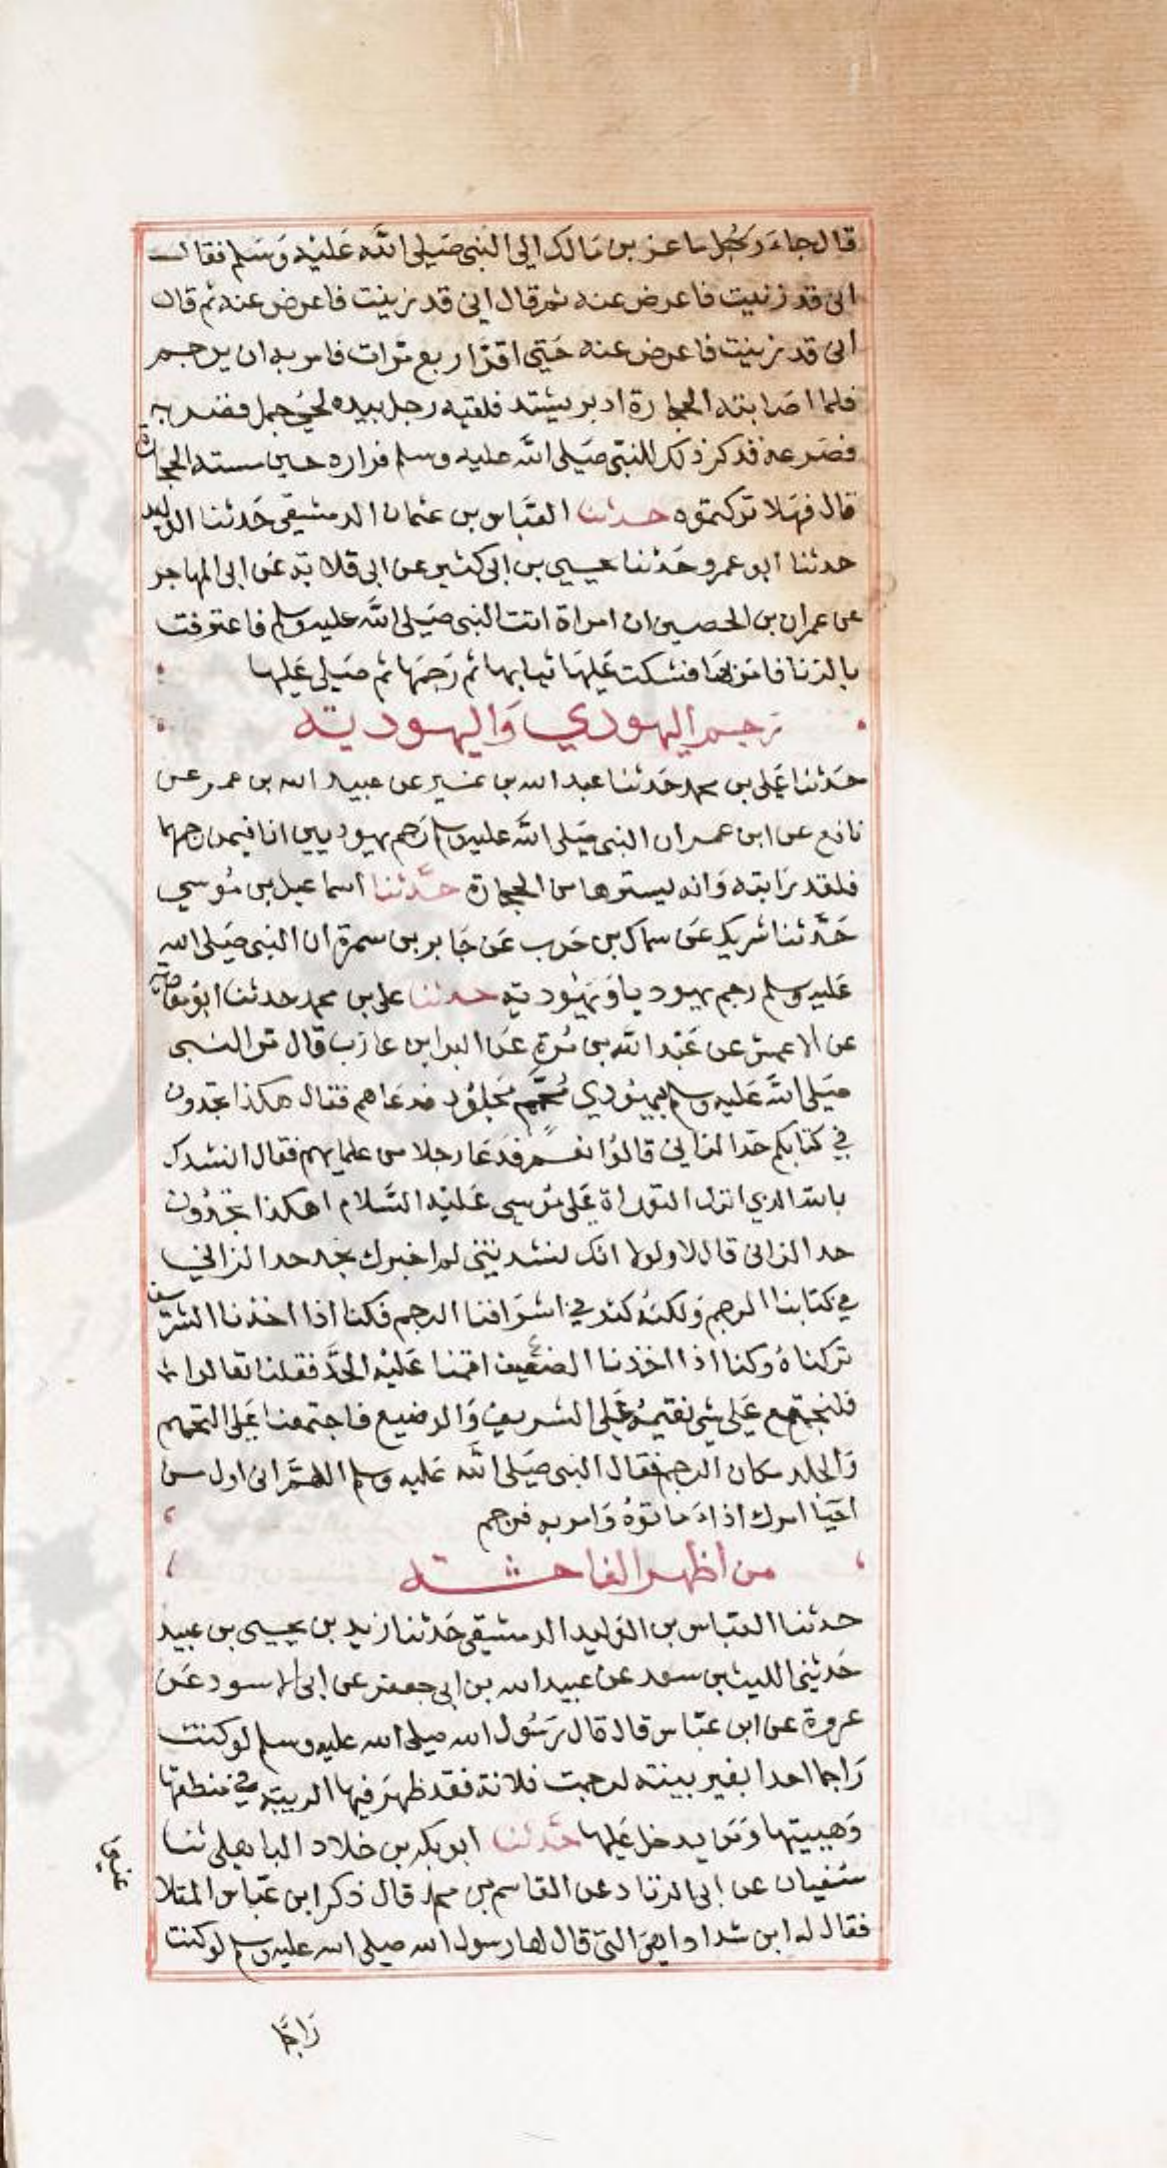 قال جاء رجل ماعز بن مالك الي النبي صَلي الله عَليْه وَسَلم فقال
اني قد زنيت فاعرض عنه ثم قال اني قد زنيت فاعرض عنه ثم قال
اني قد زنيت فاعرض عنه حَتي اقرّ اربع مرات فامر به ان يرجم
فلما اصَابته الحجارة ادبر يشتد فلقيه رجل بيده لحي جمل فضربه
فصَرعه فذكر ذلك للنبي صَلي الله عليه وسلم فراره حين مسته الحجارة
قال فهَلا تركتموه حدثنا العَباس بن عثمان الدمشقي حَدثنا الوليد
حدثنا ابو عمرو حَدثنا يحيي بن ابي كثير عن ابي قلابة عَن ابي المهاجر
عن عمران بن الحصين ان امراة اتت النبي صَلي الله عليه وسلم فاعترفت
بالزنا فامر بها فشكت عَليهَا ثيابها ثم رَجمَها ثم صَلي عَليها
رجم اليهودي وَاليهودية
حَدثنا عَلي بن محمد حَدثنا عبد الله بن نمير عن عبيد الله بن عمر عن
نافع عن ابن عمر ان النبي صَلي الله عليه وسلم رجم يهوديين انا فيمن رجمهما
فلقد رَايته وَانه يسترها من الحجارة حدّثنا اسماعيل بن مُوسي
حَدّثنا شريك عَن سماك بن حَرب عَن جَابر بن سمرة ان النبي صَلي الله
عَليه وسلم رجم يهوديا وَيَهُودية حدثنا علي بن محمد حدثنا ابو معاوية
عن الاعمش عن عَبْد الله بن مُرة عَن البرا بن عازب قال مر النبي
صَلي الله عَليه وسلم بيَهُودي مُحَمَّم مَجلوُد فدعَاهم فقال هكذا تجدون
في كتابكم حَد الزاني قالوُا نعَم فدَعَا رجلا من علمايهم فقال انشدك
بالله الذي انزل التوراة عَلي مُوسي عَليْه السَّلام اهكذا تجدُون
حد الزاني قال لا ولولا انك نشدتني لم اخبرك نجد حد الزاني
في كتابنا الرجم وَلكنهُ كثر في اشرَافنا الرجم فكنا اذا اخذنا الشريف
تركناهُ وكنا اذا اخذنا الضعيف اقمنا عَليْه الحَدَّ فقلنا تعالوا
فلنجتمع عَلي شي نقيمهُ عَلي الشريف وَالوضيع فاجتمعنا عَلي التحميم
وَالجلد مكان الرجم فقال النبي صَلي الله عَليه وسلم اللهمَّ اني اول من
احيَا امرك اذ امَاتوهُ وَامر به فرجم
من اظهر الفاحشة
حدثنا العَباس بن الوَليد الدمشقي حَدثنا زيد بن يحيى بن عبيد
حَدثني الليث بن سعد عن عبيد الله بن ابي جعفر عن ابي الاسود عَن
عروة عن ابن عبّاس قال قال رَسُول الله صلي الله عليه وسلم لو كنت
رَاجما احدا بغير بينة لرجمت فلانة فقد ظهَر فيها الريبة في منطقها
وَهييتها وَمَن يدخل عَليها حدّثنا ابو بكر بن خلاد الباهلي ثنا
سُفيان عن ابي الزناد عن القاسم بن محمد قال ذكر ابن عبّاس المتلا
عنين
فقال له ابن شداد اهي التي قال لها رسول الله صلي الله عليه وسلم لو كنت
رَاجمًا